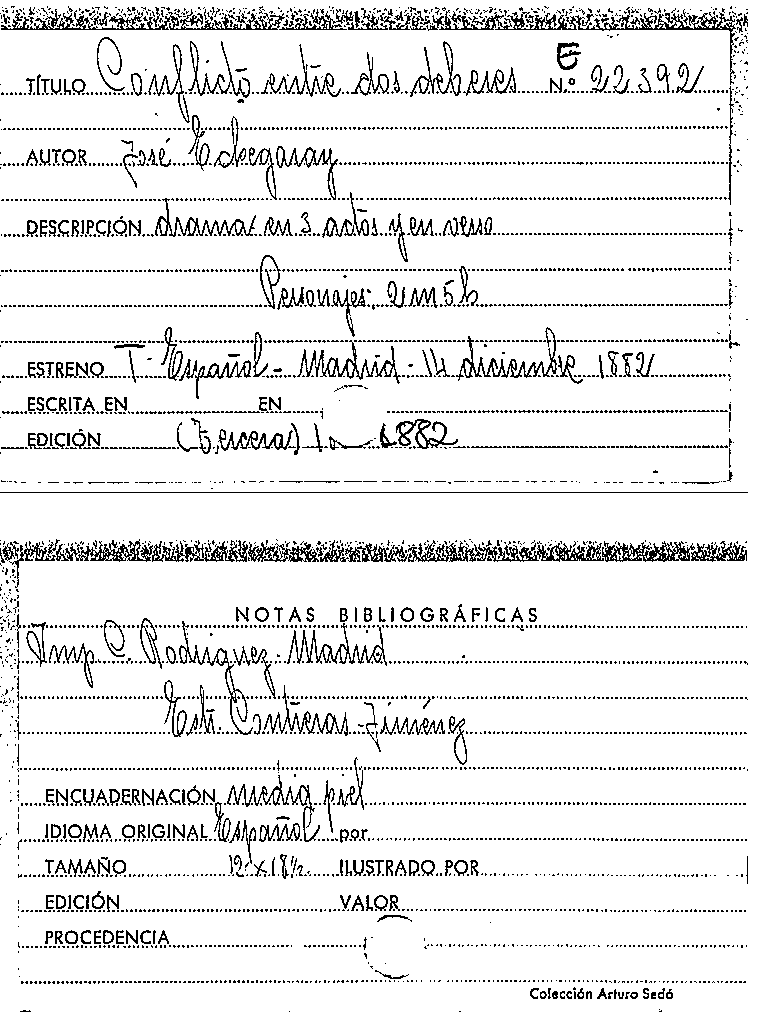 TÍTULO Conflicto entre dos deberes E N.º 22392
AUTOR José Echegaray
DESCRIPCIÓN drama en 3 actos y en verso
Personajes: 2m 5h
ESTRENO T. Español - Madrid - 14 diciembre 1882
ESCRITA EN EN
EDICIÓN (Tercera) 1882
NOTAS BIBLIOGRÁFICAS
Imp C. Rodriguez - Madrid
Estr. Contreras - Jiménez
ENCUADERNACIÓN media piel
IDIOMA ORIGINAL Español por
TAMAÑO 12 x 18½ ILUSTRADO POR
EDICIÓN VALOR
PROCEDENCIA
Colección Arturo Sedó